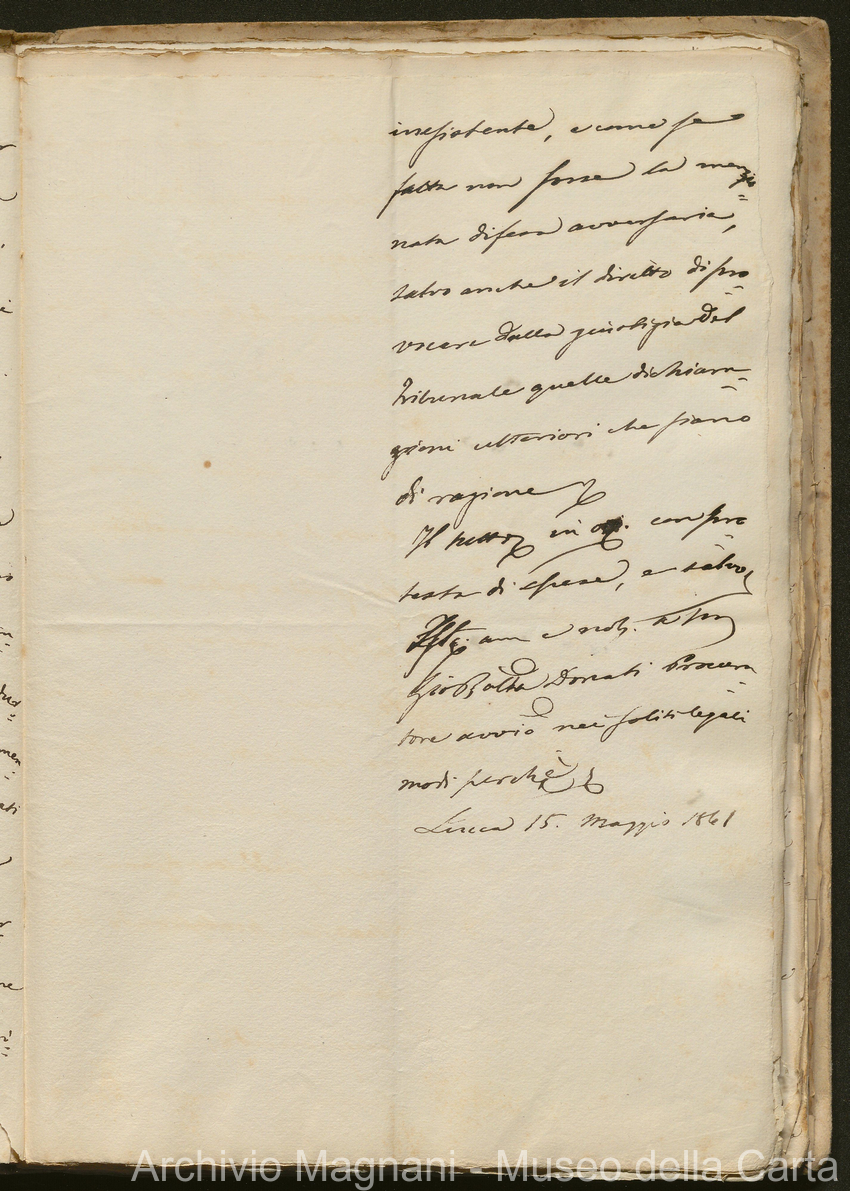 inesistente, e come se
fatta non fosse la men=
zio=
nata difesa avversaria,
salvo anche il diretto di pro=
vocare dalla giustizia del
Tribunale quelle dichiara=
zioni ulteriori che siano
di ragione
Il tutto in con pro=
testa di spese, e salvo
e
Gio Batta Donati Procura=
tore avvio nei soliti legali
modi perchè
Lucca 15. Maggio 1861
Archivio Magnani - Museo della Carta